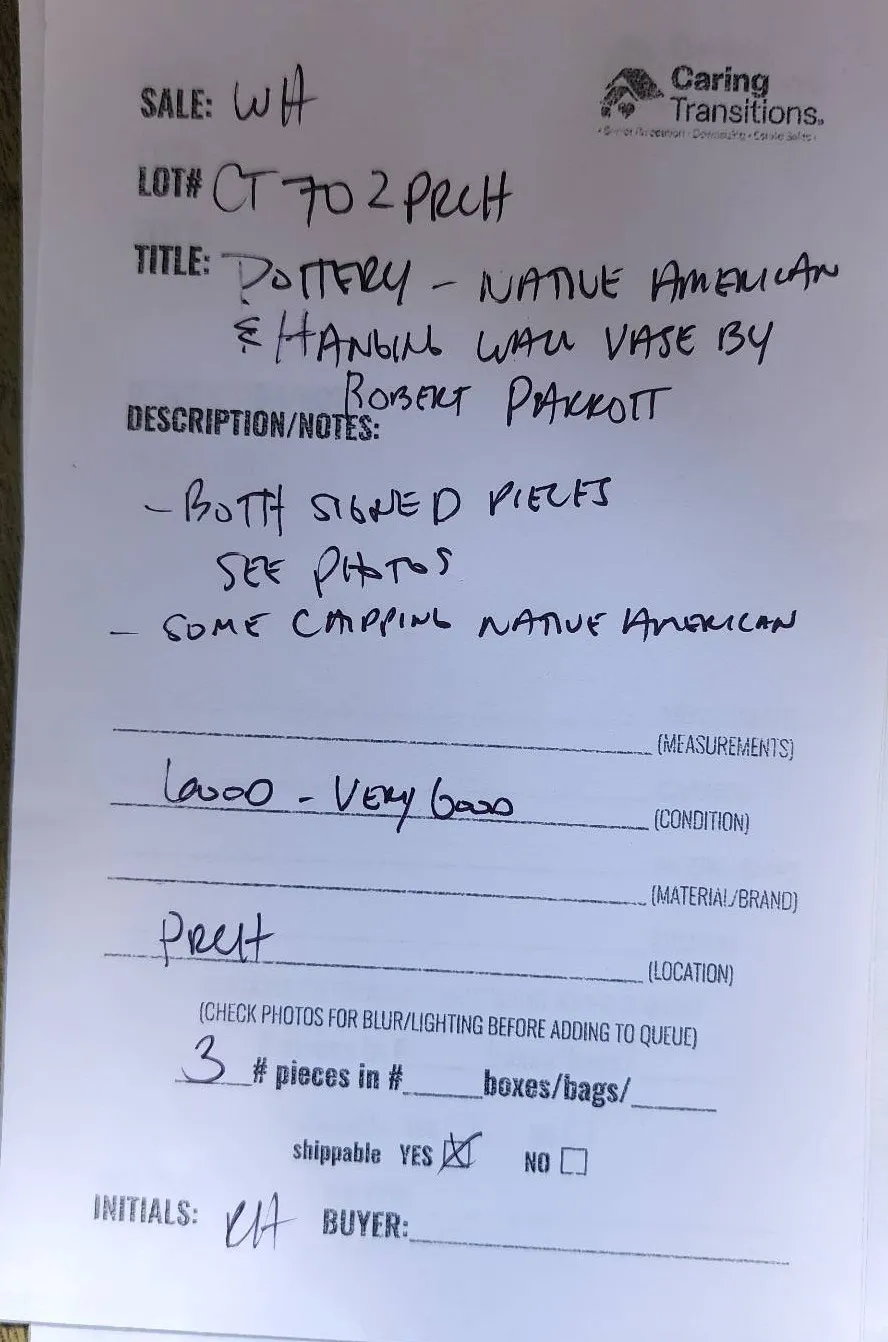 Caring
Transitions
SALE: WH
LOT# CT 702 PRCH
TITLE: POTTERY - NATIVE AMERICAN
& HANGING WALL VASE BY
ROBERT PARROTT
DESCRIPTION/NOTES:
- BOTH SIGNED PIECES
SEE PHOTOS
- SOME CHIPPING NATIVE AMERICAN
(MEASUREMENTS)
GOOD - VERY GOOD (CONDITION)
(MATERIAL/BRAND)
PRCH (LOCATION)
(CHECK PHOTOS FOR BLUR/LIGHTING BEFORE ADDING TO QUEUE)
3 # pieces in # boxes/bags/
shippable YES NO
INITIALS: RH BUYER: